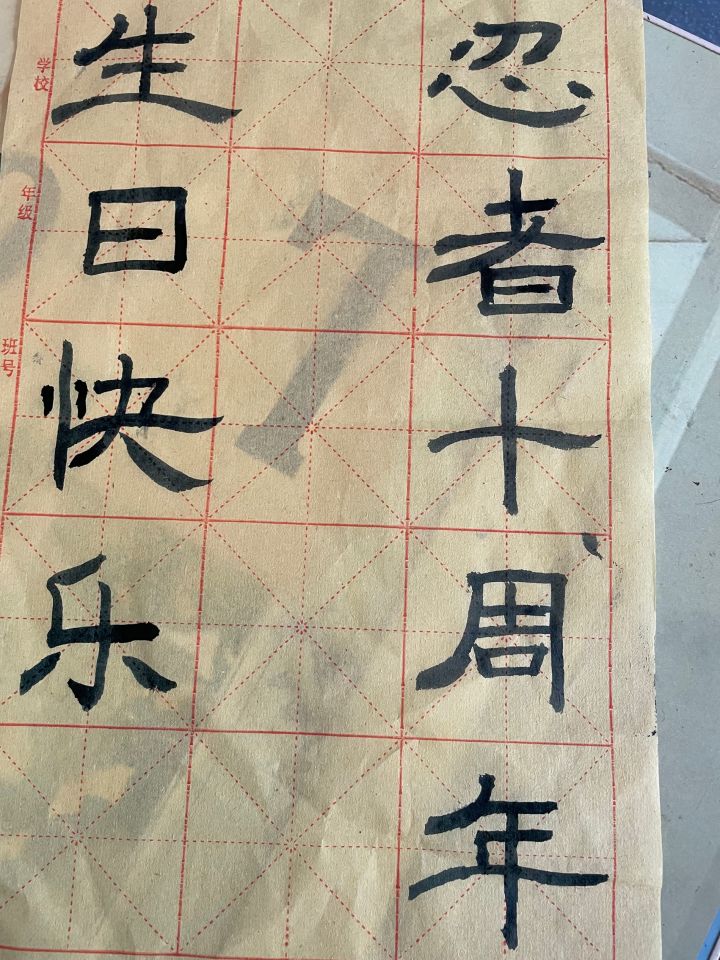 忍者十周年
生日快乐
学校
年级
班号